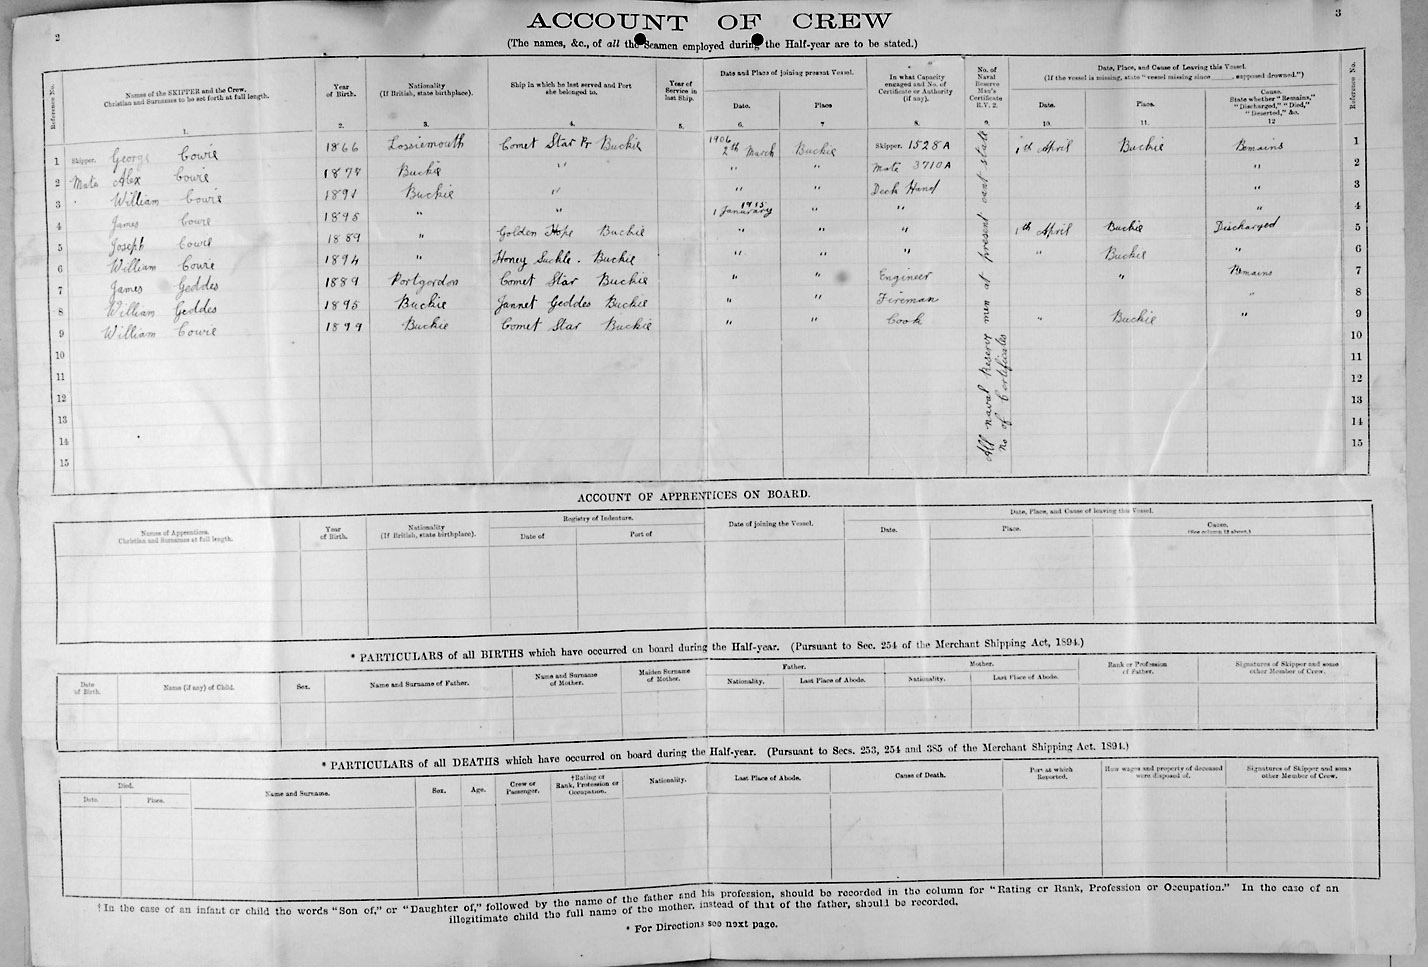 2
3
ACCOUNT OF CREW
(The names, &c., of all the Seamen employed during the Half-year are to be stated.)
Reference No. | Names of the SKIPPER and the Crew, Christian and Surnames to be set forth at full length. | Year of Birth. | Nationality (If British, state birthplace). | Ship in which he last served and Port she belonged to. | Year of Service in last Ship. | Date and Place of joining present Vessel. | In what Capacity engaged and No. of Certificate or Authority (if any). | No. of Naval Reserve Man's Certificate R.V. 2. | Date, Place, and Cause of Leaving this Vessel. (If the vessel is missing, state "vessel missing since ____, supposed drowned.") | Reference No.
Date. | Place | Date. | Place. | Cause. State whether "Remains," "Discharged," "Died," "Deserted," &c.
1. 2. 3. 4. 5. 6. 7 8. 9. 10. 11. 12
1 Skipper. George Cowie 1866 Lossiemouth Comet Star Buckie 1906 2th March Buckie Skipper. 1528A 1th April Buckie Remains 1
2 Mate Alex Cowie Buckie " " " Mate 3710A " 2
3 William Cowie Buckie " " " Deck Hand " 3
4 James Cowie 1895 " " 1 Janurary 1915 " " " 4
5 Joseph Cowie 1889 " Golden Hope Buckie " " " 1th April Buckie Discharged 5
6 William Cowie 1894 " Honey Suckle. Buckie " " " " Buckie " 6
7 James Geddes 1889 Portgordon Comet Star Buckie " " Engineer " Remains 7
8 William Geddes 1895 Buckie Jannet Geddes Buckie " " Fireman " 8
9 William Cowie 1899 Buckie Comet Star Buckie " " Cook " Buckie " 9
10 10
11 11
12 12
13 13
14 14
15 15
All naval Reserve men at present cant state
no of Certificates
ACCOUNT OF APPRENTICES ON BOARD.
Names of Apprentices. Christian and Surnames at full length. | Year of Birth. | Nationality (If British, state birthplace). | Registry of Indenture. | Date of joining the Vessel. | Date, Place, and Cause of leaving this Vessel.
Date of | Port of | Date. | Place. | Cause. (See column 12 above.)
* PARTICULARS of all BIRTHS which have occurred on board during the Half-year. (Pursuant to Sec. 254 of the Merchant Shipping Act, 1894.)
Date of Birth. | Name (if any) of Child. | Sex. | Name and Surname of Father. | Name and Surname of Mother. | Maiden Surname of Mother. | Father. | Mother. | Rank or Profession of Father. | Signatures of Skipper and some other Member of Crew.
Nationality. | Last Place of Abode. | Nationality. | Last Place of Abode.
* PARTICULARS of all DEATHS which have occurred on board during the Half-year. (Pursuant to Secs. 253, 254 and 385 of the Merchant Shipping Act. 1894.)
Died. | Name and Surname. | Sex. | Age. | Crew or Passenger. | †Rating or Rank, Profession or Occupation. | Nationality. | Last Place of Abode. | Cause of Death. | Port at which Reported. | How wages and property of deceased were disposed of. | Signatures of Skipper and some other Member of Crew.
Date. | Place.
† In the case of an infant or child the words "Son of," or "Daughter of," followed by the name of the father and his profession, should be recorded in the column for "Rating or Rank, Profession or Occupation." In the case of an
illegitimate child the full name of the mother, instead of that of the father, should be recorded.
* For Directions see next page.